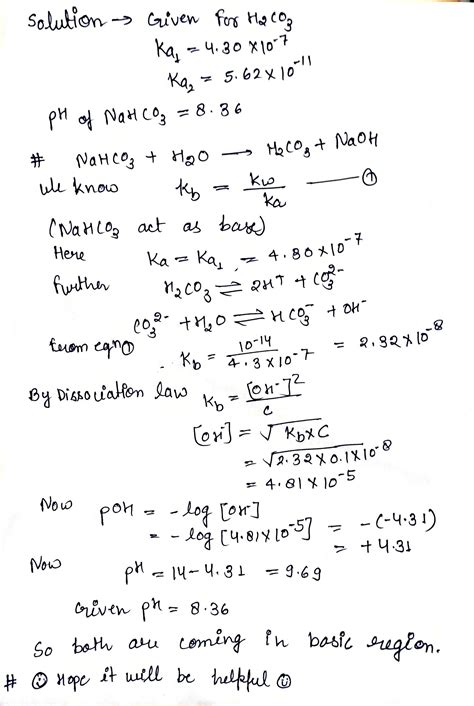 Solution → Given for H2CO3
Ka1 = 4.30 × 10^-7
Ka2 = 5.62 × 10^-11
pH of NaHCO3 = 8.36
# NaHCO3 + H2O → H2CO3 + NaOH
We know Kb = Kw/Ka —— ①
(NaHCO3 act as base)
Here Ka = Ka1 = 4.80 × 10^-7
Further H2CO3 ⇌ 2H+ + CO3^2-
CO3^2- + H2O ⇌ HCO3^- + OH-
from eqn ① Kb = 10^-14 / 4.3 × 10^-7 = 2.32 × 10^-8
By Dissociation law Kb = [OH-]^2 / C
[OH-] = √Kb × C
= √2.32 × 0.1 × 10^-8
= 4.81 × 10^-5
Now pOH = -log [OH-]
= -log [4.81 × 10^-5] = -(-4.31)
= +4.31
Now pH = 14 - 4.31 = 9.69
Given pH = 8.36
So both are coming in basic region.
# ☺ Hope it will be helpful ☺